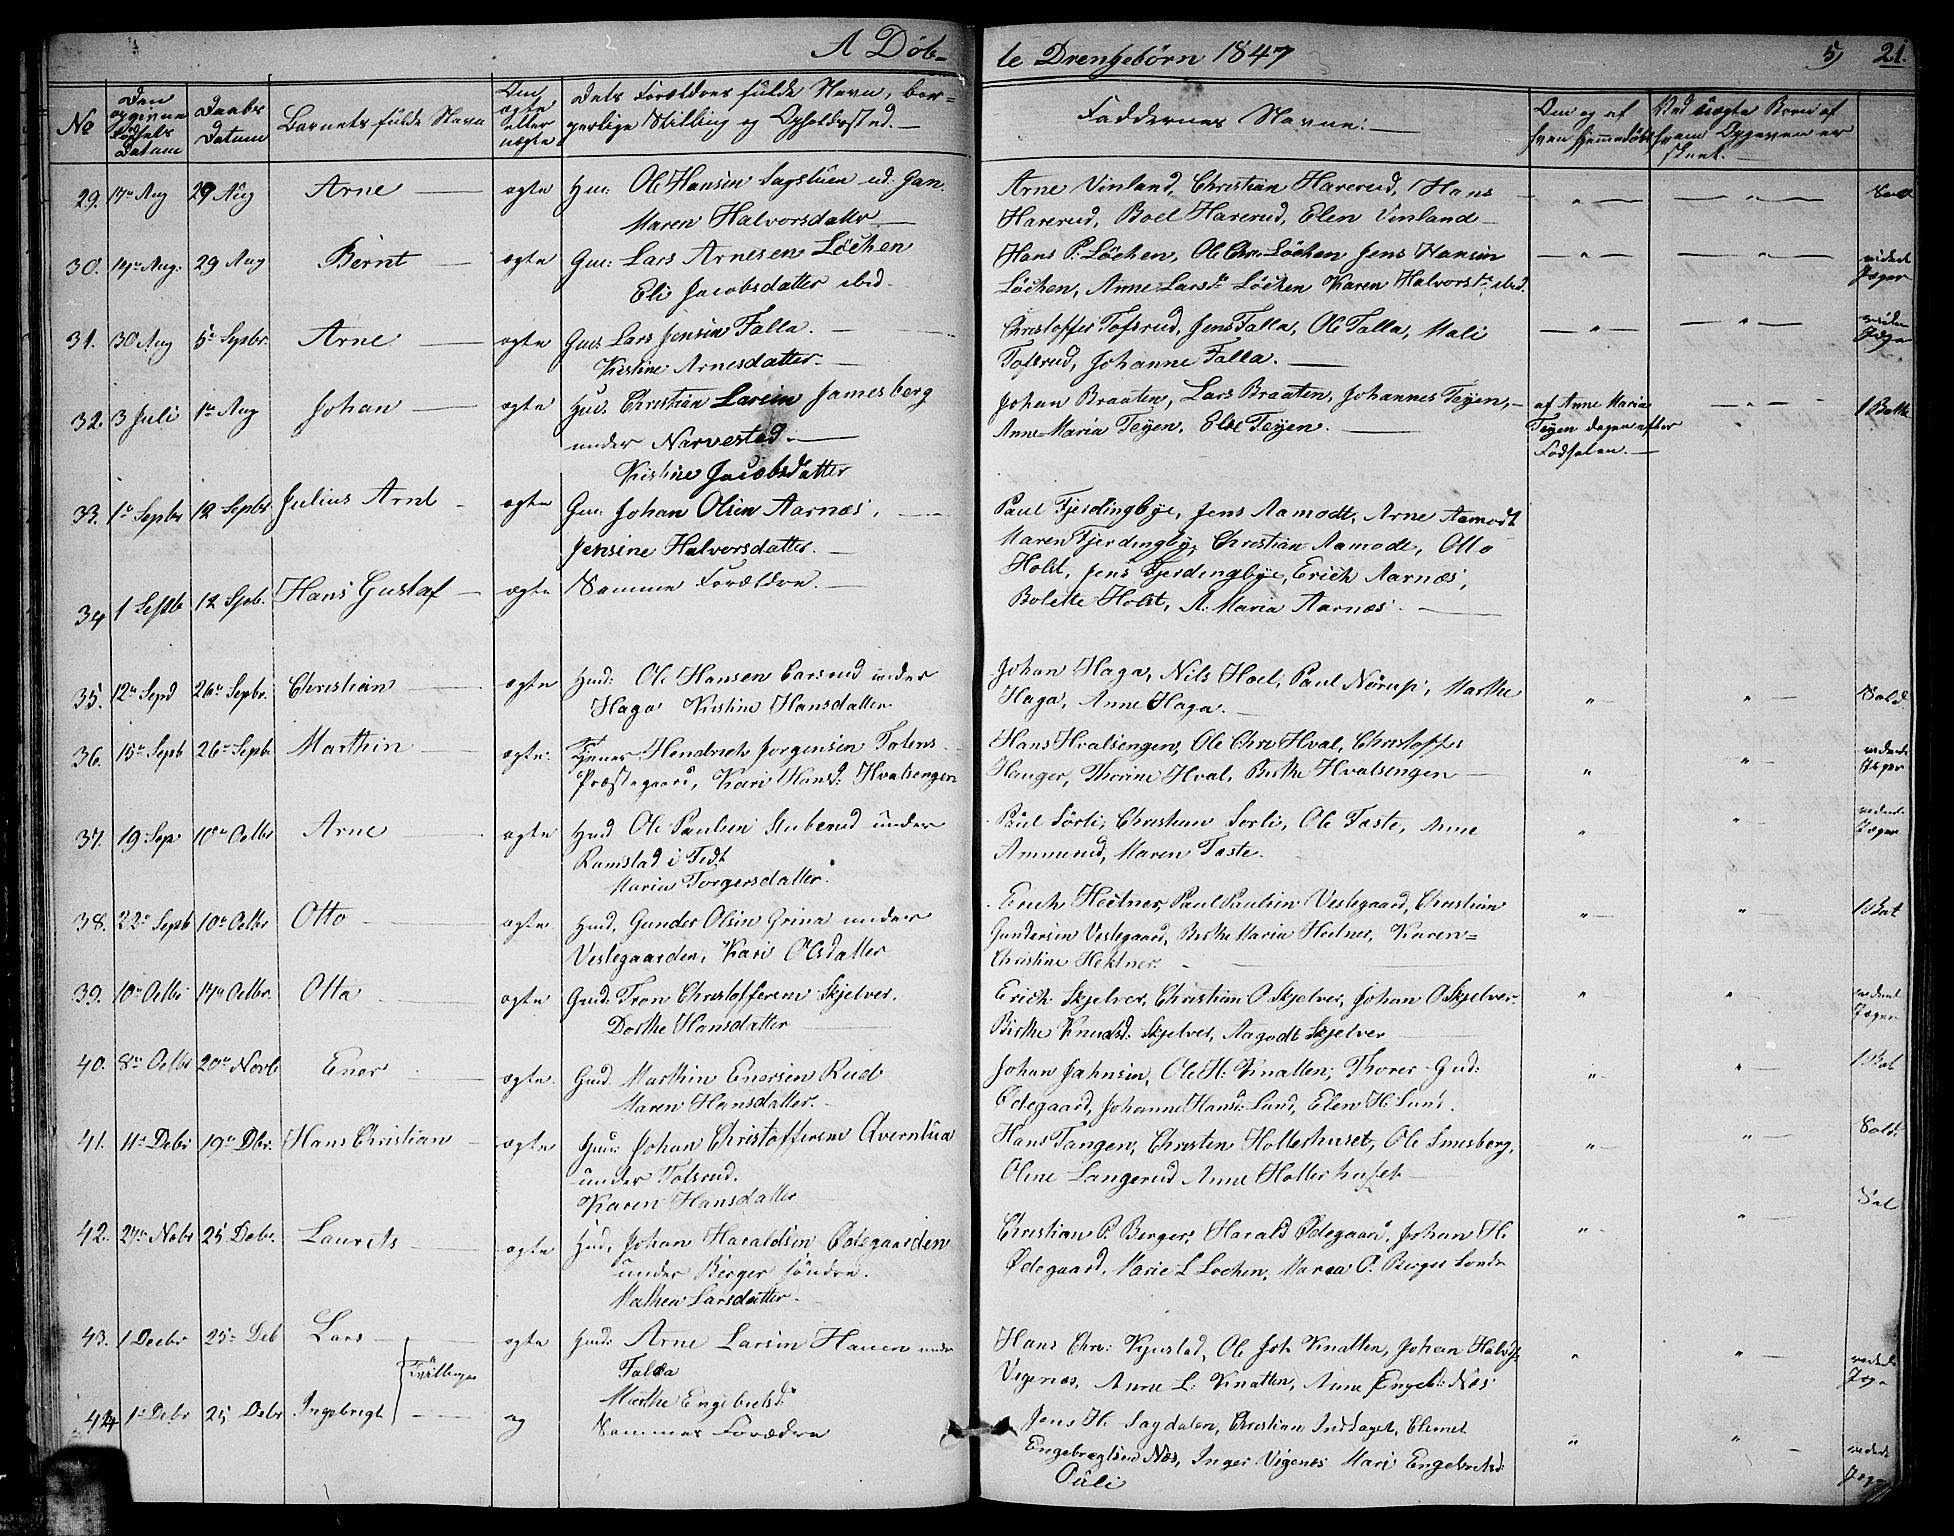 A Døb-
te Drengebørn 1847
5)
21.
No
Den opgivne Fødsels Datum
Daabs Datum
Barnets fulde Navn
Om ægte eller uægte
Dets Forældres fulde Navn, bor-
gerlige Stilling og Opholdssted. —
Faddernes Navne: —
Om og af hvem hjemmedøbt
Ved uægte Børn af hvem Opgaven er skeet. —
29. 17de Aug 29 Aug Arne — ægte Hm: Ole Hansen Sagstuen ud. Gan.
Maren Halvorsdatter —
Arne Vinland, Christian Harerud, Hans
Harerud, Boel Harerud, Elen Vinland —
30. 14de Aug. 29 Aug Bernt — ægte Gm: Lars Arnesen Löchen
Eli Jacobsdatter ibid.
Hans P. Löchen, Ole Chr. Löchen Jens Hansen
Löchen, Anne Larsdr Löchen Karen Halvorsdr ibid.
31. 30 Aug 5te Sepbr. Arne — ægte Gmd Lars Jensen Falla. —
Kirstine Arnesdatter. —
Christoffer Tofsrud, Jens Falla, Ole Falla, Mali
Tofsrud, Johanne Falla. —
32. 3 Juli 1te Aug Johan — ægte Hud. Christian Larsen Jamesberg
under Narvestad. —
Kirstine Jacobsdatter
Johan Braaten, Lars Braaten, Johannes Teyen, —
Anne-Maria Teyen, Else Teyen. —
af Anne Maria
Teyen dagen efter
Fødselen. —
33. 1te Septbr 12 Septbr Julius Arnt — ægte Gm: Johan Olsen Aarnæs, —
Jensine Halvorsdatter. —
Paul Fjerdingbye, Jens Aamodt, Arne Aamodt
Maren Fjerdingby, Christian Aamodt, Otto
34 1 Septb 12 Spb. Hans Gustaf — ægte Samme Forældre. —
Holst, Jens Fjerdingbye, Erich Aarnæs,
Bolette Holst, A. Maria Aarnæs. —
35. 12te Sepd 26te Sepbr. Christian — ægte Hmd: Ole Hansen Carsrud under
Haga Kirstine Hansdatter.
Johan Haga, Nils Hoel, Paul Nörup, Marthe
Haga, Anne Haga. —
Sold
36. 15de Septb 26te Septb Marthin — ægte. Tjener Hendrich Jørgensen Totens
Præstegaard, Kari Hansd: Hvalsengen
Hans Hvalsengen, Ole Chr Hval, Christoffer
Hauger, Thorine Hval, Berthe Hvalsengen —
37. 19 Sep 10de Octbr Arne — ægte Hmd Ole Paulsen Stuberud under
Ramstad i Fedt
Maria Torgersdatter.
Paul Sörli, Christian Sorli, Ole Taste, Anne
Ammerud, Maren Taste.
38. 22de Septb 10de Octbr Otto — ægte Hmd, Gunder Olsen Grina under
Vestegaarden, Kari Olsdatter
Erich Hectner, Paul Paulsen Vestegaard, Christian
Gundersen Vestegaard, Berthe Maria Hectner, Karen=
Christine Hektner. —
39. 10de Octbr 17de Octbr. Otto — ægte Gmd: Tron Christoffersen Skjelver.
Dorthe Hansdatter —
Erich Skjelver, Christian O Skjelver, Johan O Skjelver
Birthe Knudsd: Skjelver, Aagodt Skjelver —
40. 8de Octbr 20de Novb Ener — ægte. Gmd. Marthin Enersen Rud
Maren Hansdatter. —
Johan Jahnsen, Ole H: Knatten, Thorer Gud:
Ødegaard, Johanne Hansd: Lund, Elen H. Lund.
41. 11te Debr 19de Dbr. Hans Christian — ægte Hmd: Johan Christoffersen Qverntua
under Tolsrud.
Karen Hansdatter —
Hans Tangen, Christen Holleshuset, Ole Smesberg,
Oline Langerud Anne Holterhuset —
Sold.
42. 27de Nobr 25 Debr. Laurits — ægte Hud. Johan Haraldsen Ødegaarden
under Berger söndre.
Mathea Larsdatter.
Christian P. Berger, Harald Ødegaard, Johan H.
Ødegaard, Marie L Lochen, Maren P. Berger Sondr
43. 1 Decbr 25de Deb Lars — ægte Hmd: Arne Larsen Hauen under
Falla
Marthe Engebretsd:
Tvillinger
Hans Chr: Kjustad, Ole Joh. Knatten, Johan Halvs.
Vigenæs, Anne L: Knatten, Anne Engebr: Næs
44 1te Debr 25 Debr Ingebrigt — og Sammes Forældre
Jens H. Sagdalen, Christian Indlaget, Clemet
Engebregtsen Næs, Inger Vigenæs Mari Engebretsd:
Puli